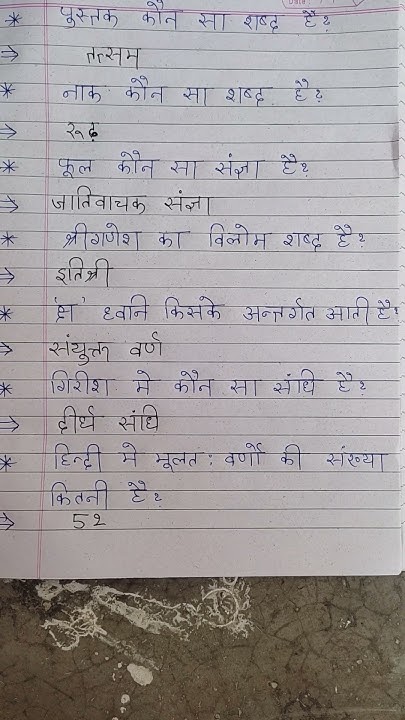 * पुस्तक कौन सा शब्द है?
⇒ तत्सम
* नाक कौन सा शब्द है?
⇒ रूढ़
* फूल कौन सा संज्ञा है?
⇒ जातिवाचक संज्ञा
* श्रीगणेश का विलोम शब्द है?
⇒ इतिश्री
* 'क्ष' ध्वनि किसके अन्तर्गत आती है?
⇒ संयुक्त वर्ण
* गिरीश मे कौन सा संधि है?
⇒ दीर्घ संधि
* हिन्दी मे मूलत: वर्णो की संख्या
कितनी है?
⇒ 52